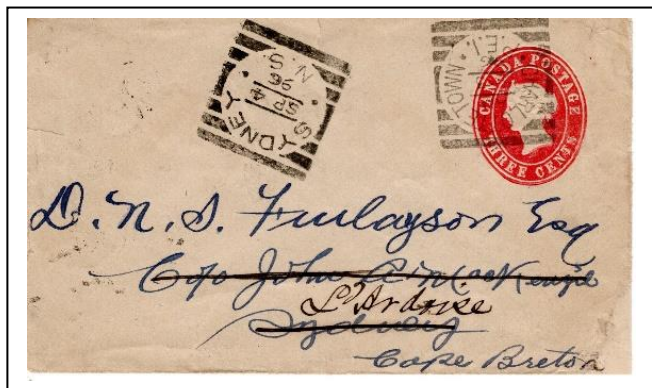 SYDNEY
SP 4
96
N.S.
TOWN
CANADA POSTAGE
THREE CENTS
D. N. S. Finlayson Esq
C/o John
L'Ardoise
Sydney
Cape Breton